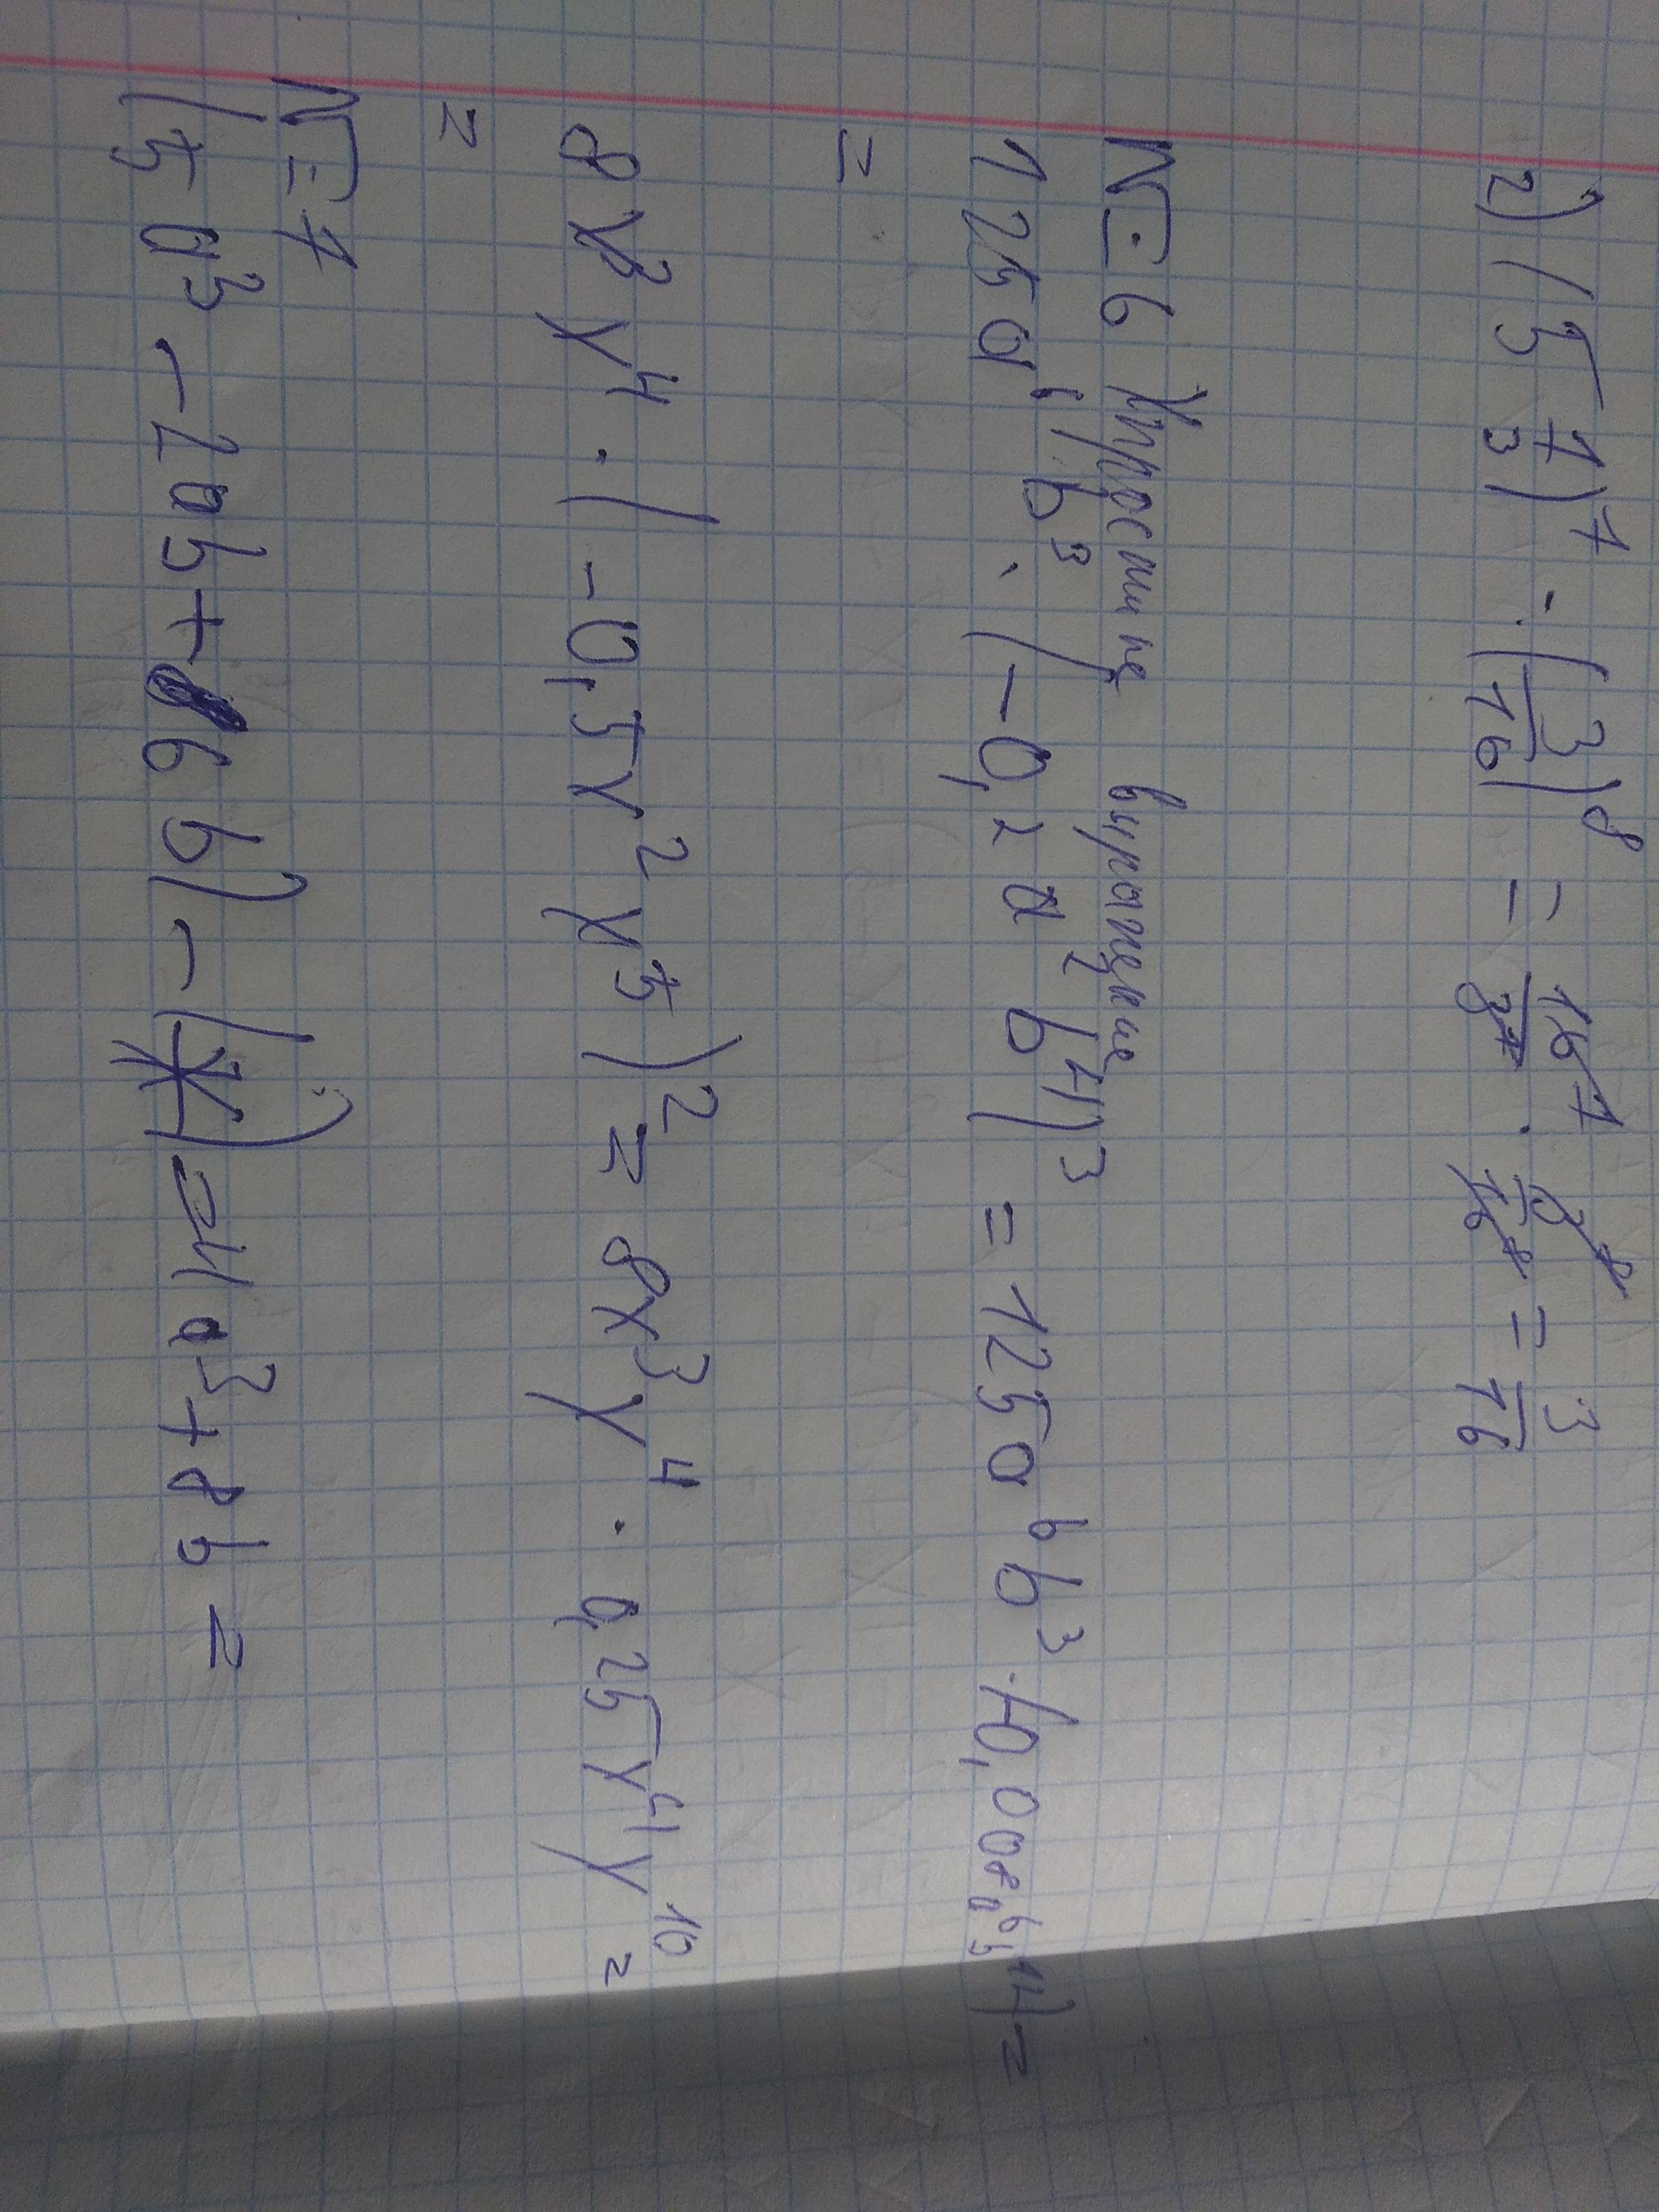 2) (5 1/3)^7 · (3/16)^8 = 16^7/3^7 · 3^8/16^8 = 3/16
№6 Упростите выражение
125a^6 b^3 · (-0,2 a^2 b^4)^3 = 125a^6 b^3 · (-0,008a^6 b^12) =
=
8x^3 y^4 · (-0,5x^2 y^5)^2 = 8x^3 y^4 · 0,25x^4 y^10 =
=
№7
(5a^3 - 2ab + 6b) - (Ж) = 4a^3 + 8b =